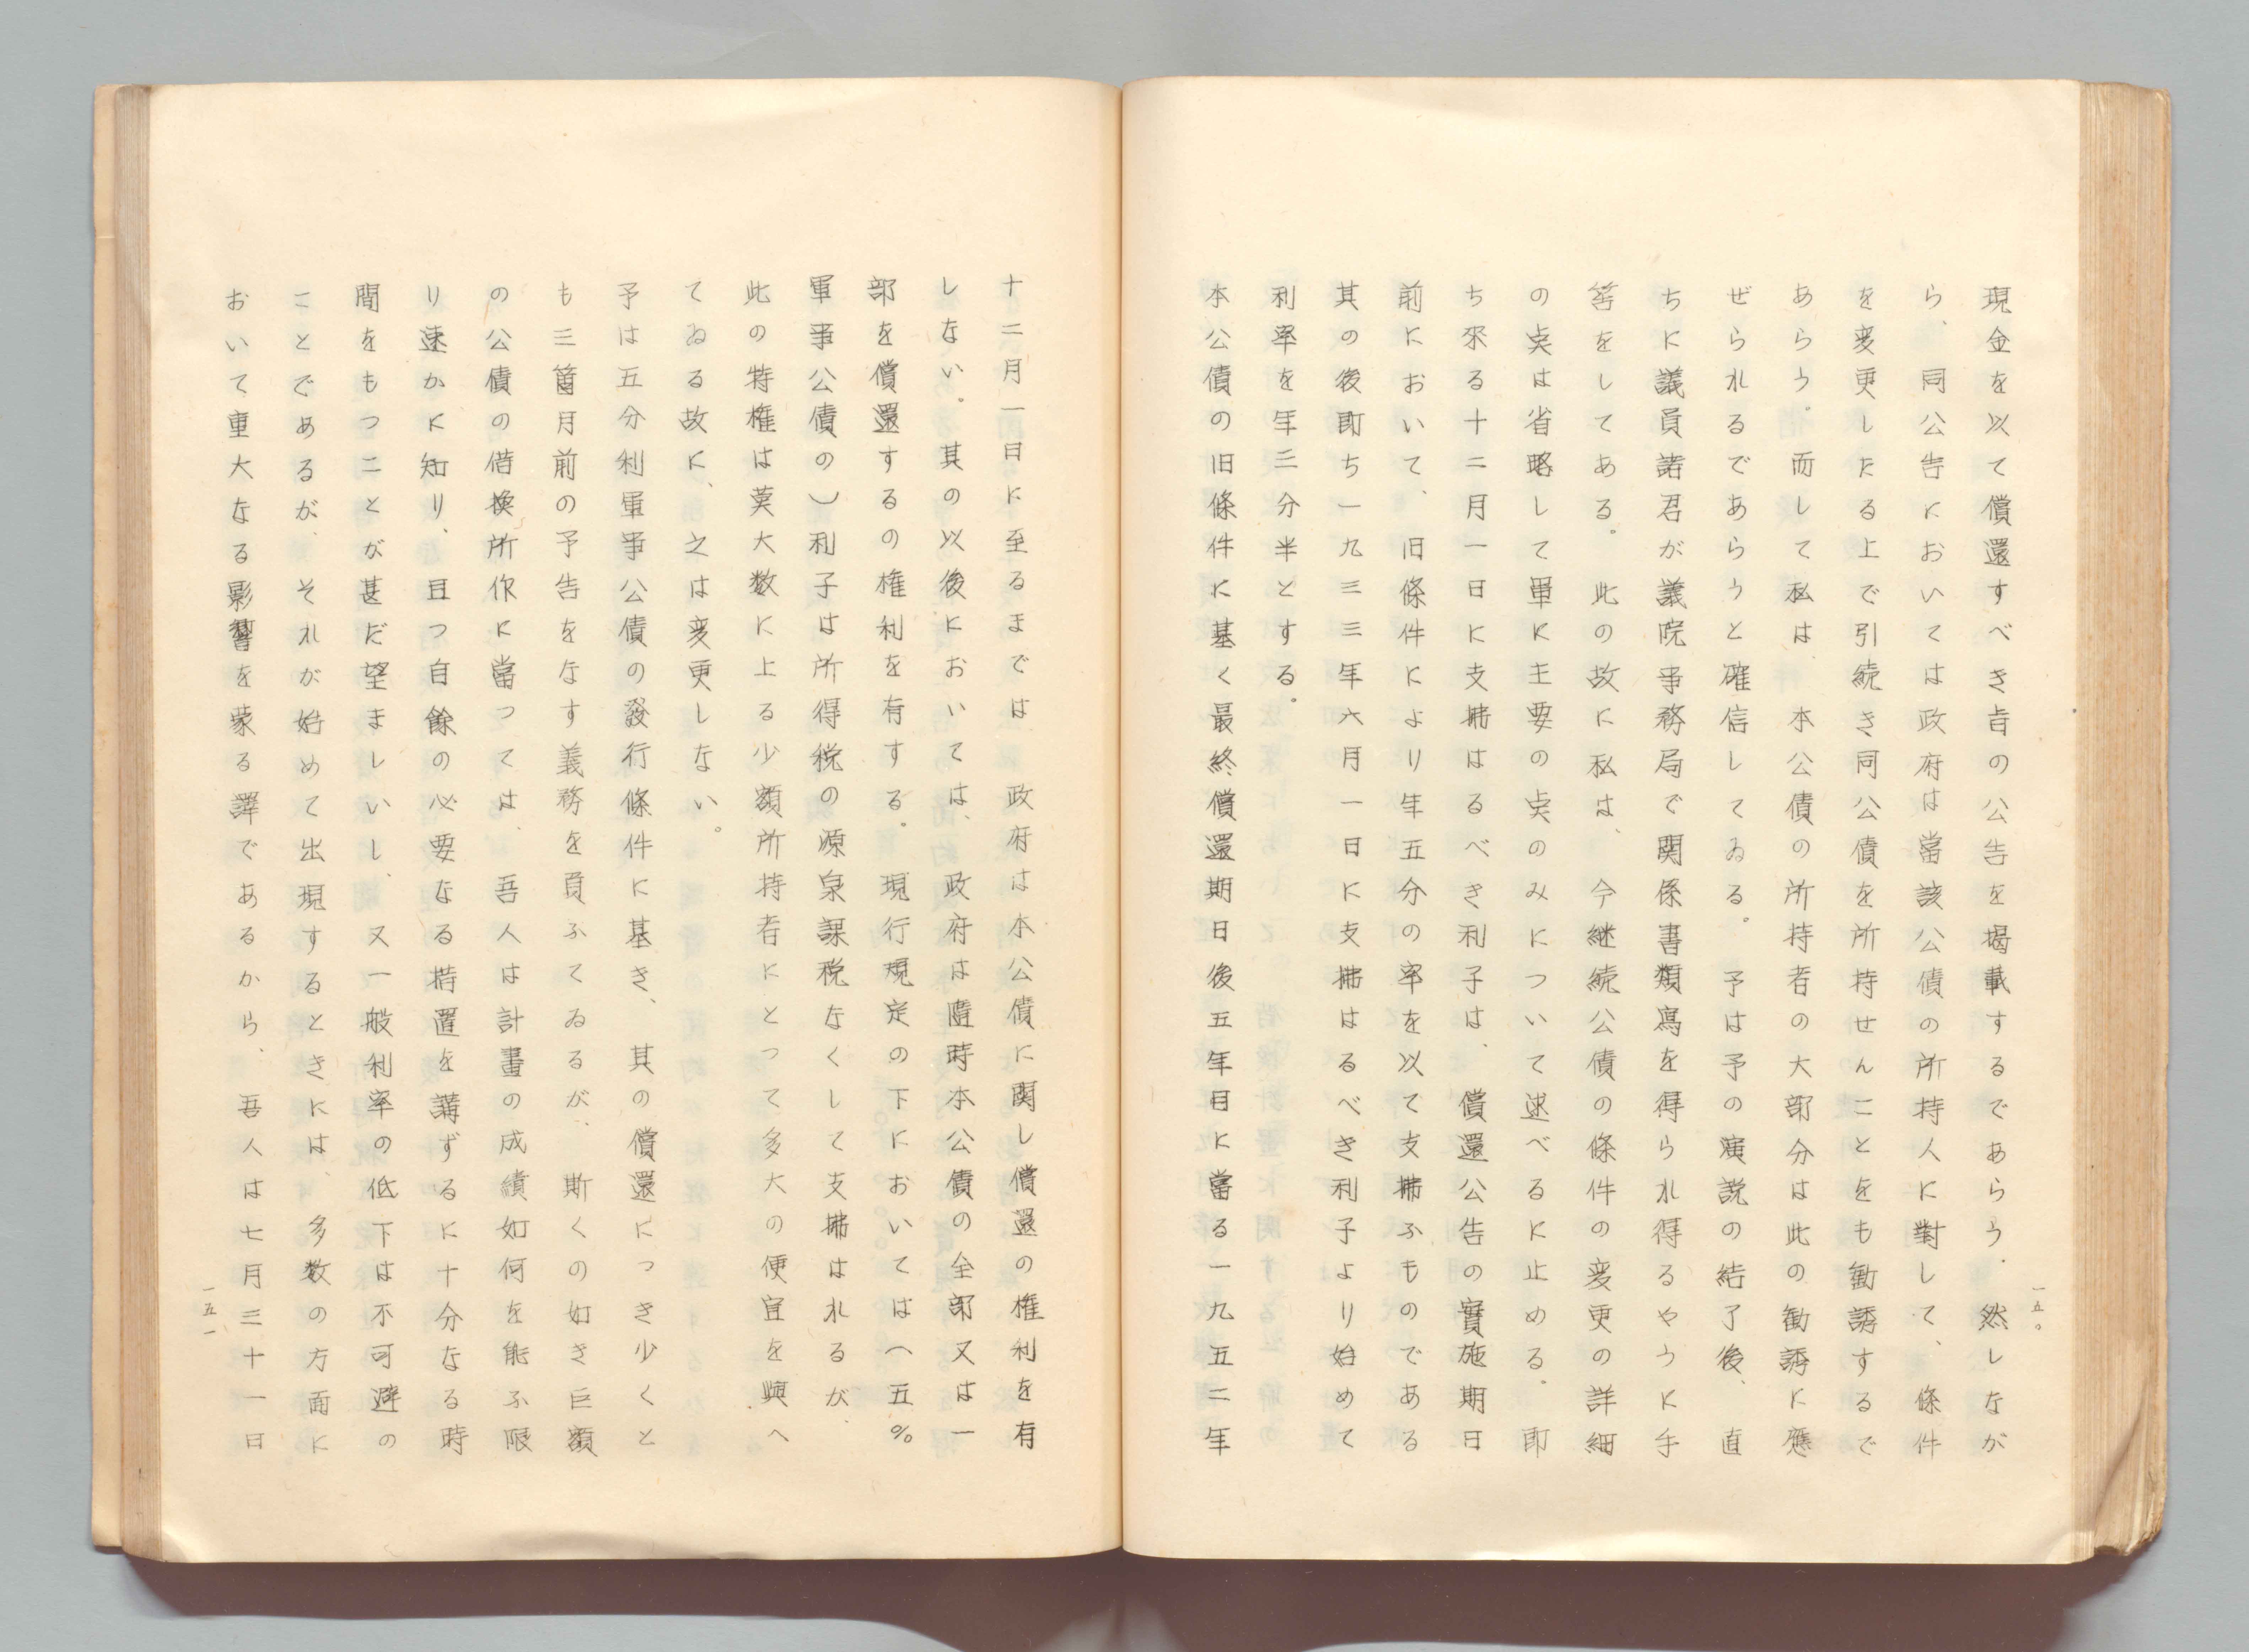 現金を以て償還すべき旨の公告を掲載するであらう．然しなが
ら、同公告においては政府は當該公債の所持人に對して、條件
を変更したる上で引続き同公債を所持せんことをも勧誘するで
あらう。而して私は、本公債の所持者の大部分は此の勧誘に應
ぜられるであらうと確信してゐる。予は予の演説の結了後、直
ちに議員諸君が議院事務局で関係書類寫を得られ得るやうに手
筈をしてある。此の故に私は、今継続公債の條件の変更の詳細
の点は省略して單に主要の点のみについて述べるに止める。即
ち來る十二月一日に支拂はるべき利子は、償還公告の實施期日
前において、旧條件により年五分の率を以て支拂ふものである
其の後即ち一九三三年六月一日に支拂はるべき利子より始めて
利率を年三分半とする。
本公債の旧條件に基く最終償還期日後五年目に當る一九五二年
一五〇
十二月一日に至るまでは、政府は本公債に関し償還の権利を有
しない。其の以後においては、政府は随時本公債の全部又は一
部を償還するの権利を有する。現行規定の下においては（五%
軍事公債の）利子は所得税の源泉課税なくして支拂はれるが、
此の特権は莫大数に上る少額所持者にとって多大の便宜を與へ
てゐる故に、之は変更しない。
予は五分利軍事公債の發行條件に基き、其の償還につき少くと
も三箇月前の予告をなす義務を負ふてゐるが、斯くの如き巨額
の公債の借換所作に當つては、吾人は計畫の成績如何を能ふ限
り速かに知り、且つ自餘の必要なる措置を講ずるに十分なる時
間をもつことが甚だ望ましいし、又一般利率の低下は不可避の
ことであるが、それが始めて出現するときには、多数の方面に
おいて重大なる影響を蒙る譯であるから、吾人は七月三十一日
一五一